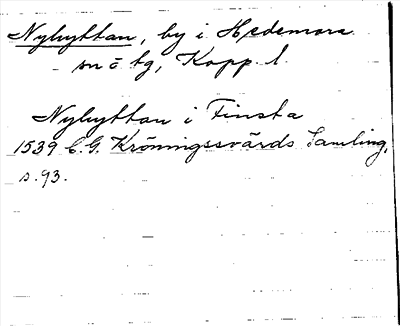 Nyhyttan, by i Hedemora
sn o tg, Kopp. l.
Nyhyttan i Finsta
1539 C.G. Kröningssvärds Samling,
s. 93.